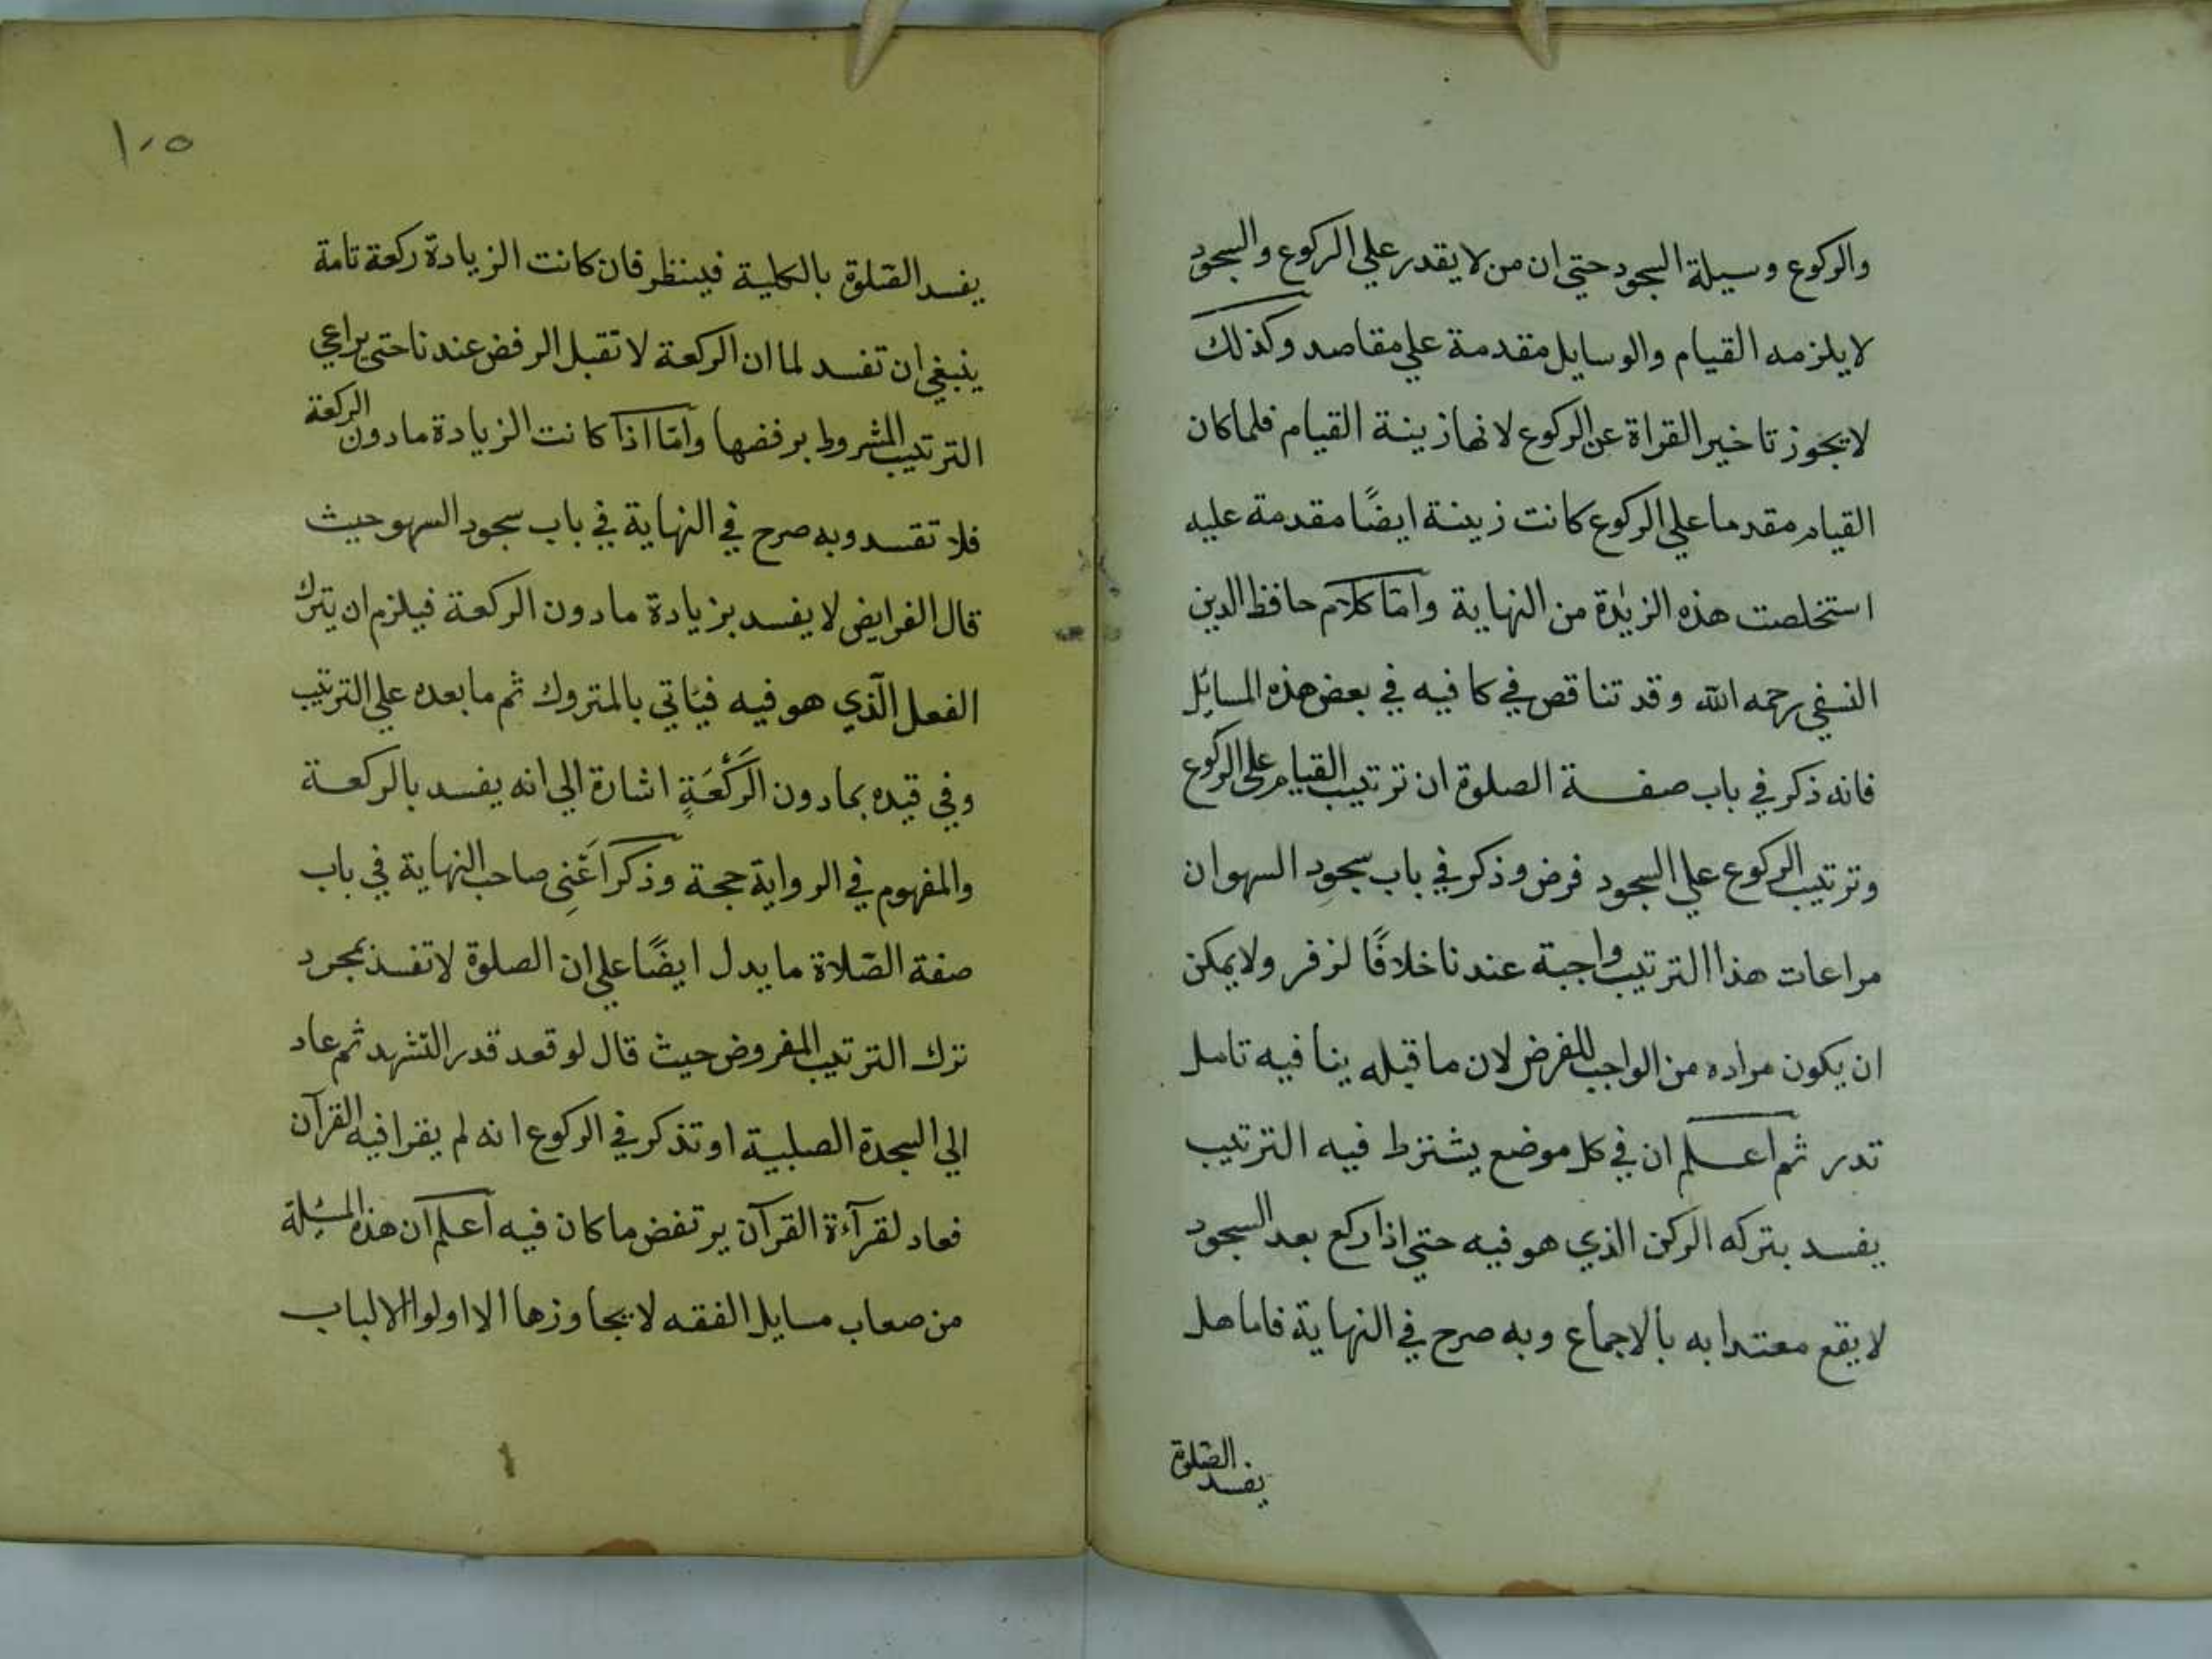 والركوع وسيلة السجود حتي ان من لا يقدر علي الركوع والسجود
لا يلزمه القيام والوسايل مقدمة علي مقاصد وكذلك
لا يجوز تاخير القراة عن الركوع لانها زينة القيام فلما كان
القيام مقدما علي الركوع كانت زينة ايضًا مقدمة عليه
استخلصت هذه الزيٰدة من النهاية وامّا كلام حافظ الدين
النسفي رحمه الله وقد تناقص في كافيه في بعض هذه المسائل
فانه ذكر في باب صفة الصلوة ان ترتيب القيام علي الركوع
وترتيب الركوع علي السجود فرض وذكر في باب سجودِ السهو ان
مراعات هذا الترتيب واجبة عندنا خلافًا لزفر ولا يمكن
ان يكون مراده من الواجب للفرض لان ما قبله ينا فيه تامل
تدر ثم اعلم ان في كل موضع يشترط فيه الترتيب
يفسد بتركه الركن الذي هو فيه حتي اذا ركع بعد السجود
لا يقع معتدا به بالاجماع وبه صرح في النهاية فاما هل
يفسد الصّلوة
١٠٥
يفسد الصّلوة بالكلية فينظر فان كانت الزيادة ركعة تامة
ينبغي ان تفسد لما ان الركعة لا تقبل الرفض عندنا حتى يراعي
الترتيب المشروط برفضها وامّا اذا كانت الزيادة ما دون الركعة
فلا تقسد وبه صرح في النهاية في باب سجود السهو حيث
قال الفرايض لا يفسد بزيادة ما دون الركعة فيلزم ان يترك
الفعل الّذي هو فيه فيَاتي بالمتروك ثم ما بعده علي الترتيب
وفي قيده بمادون الرَكْعَةِ اشارة الي انه يفسد بالركعة
والمفهوم في الرواية حجة وذكر اَعْنِى صاحب النهاية في باب
صفة الصّلاة ما يدل ايضًا علي ان الصلوة لا تفسد بمجرد
ترك الترتيب المفروض حيث قال لو قعد قدر التشهد ثم عاد
الي السجدة الصلبية او تذكر في الركوع انه لم يقرا فيه القرآن
فعاد لقرآءة القرآن يرتفض ما كان فيه اعلم ان هذه المسئلة
من صعاب مسايل الفقه لا يجاوزها الا اولوا الالباب